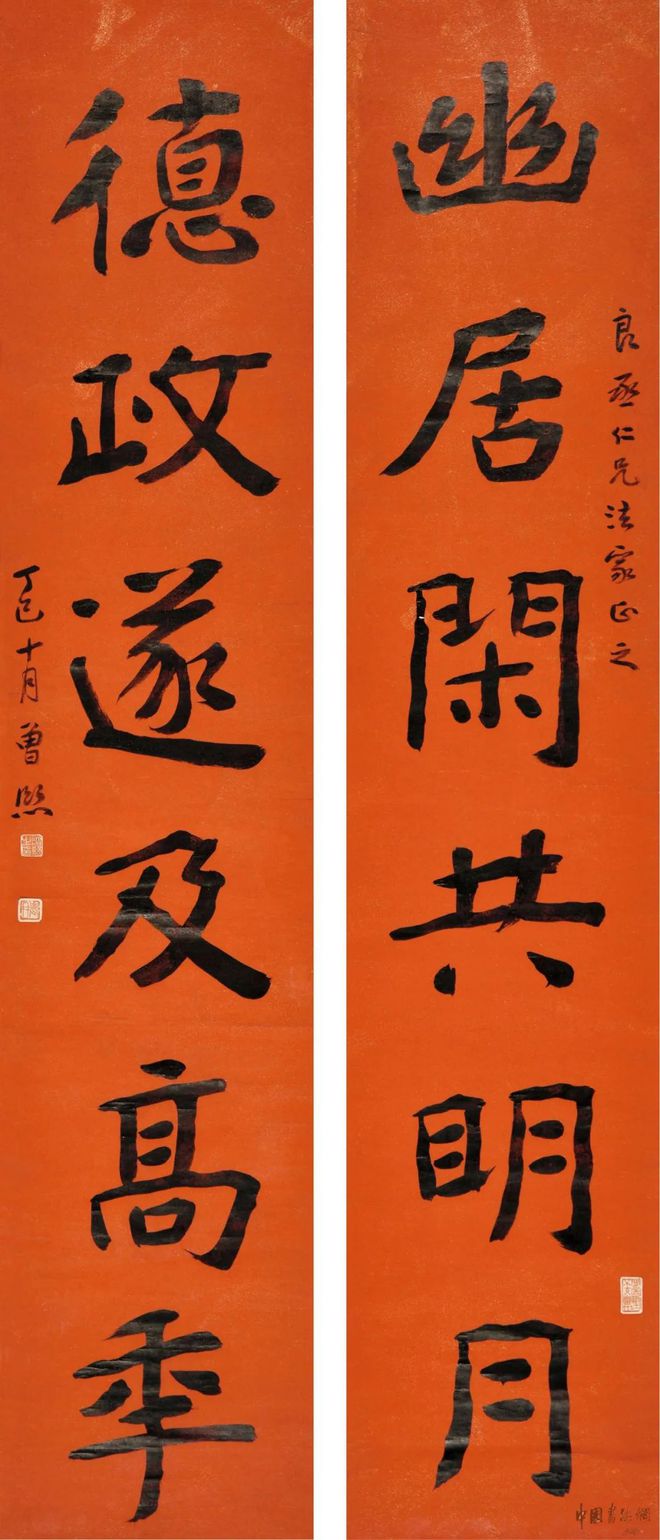 良丞仁兄法家正之
幽居閑共明月
德政遂及高年
丁巳十月曾熙
中国书法网